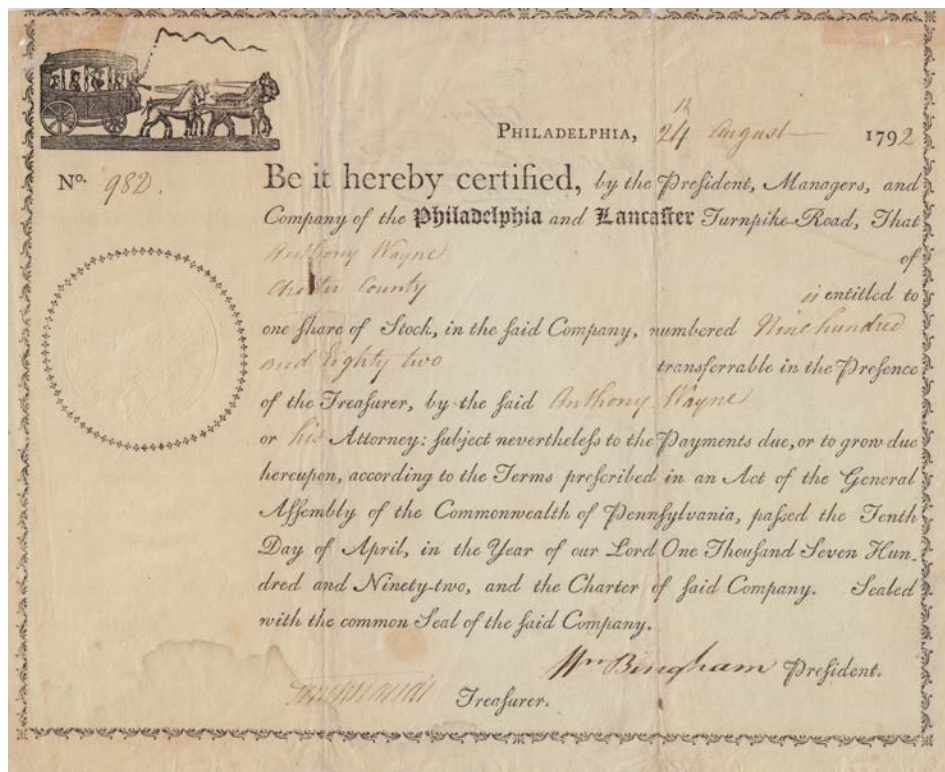 PHILADELPHIA, 24th August 1792
No. 982.
Be it hereby certified, by the Preſident, Managers, and
Company of the Philadelphia and Lancaſter Turnpike-Road, That
Anthony Wayne of
Chester County is entitled to
one ſhare of Stock, in the ſaid Company, numbered Nine hundred
and Eighty two transferrable in the Preſence
of the Treaſurer, by the ſaid Anthony Wayne
or his Attorney: ſubject nevertheleſs to the Payments due, or to grow due
hereupon, according to the Terms preſcribed in an Act of the General
Aſſembly of the Commonwealth of Pennſylvania, paſsed the Tenth
Day of April, in the Year of our Lord One Thouſand Seven Hun-
dred and Ninety-two, and the Charter of ſaid Company. Sealed
with the common Seal of the ſaid Company.
Wm Bingham Preſident.
Treaſurer.